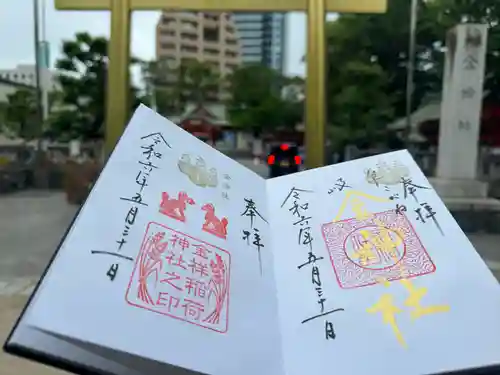 金神社
奉拝
金神社
令和六年五月三十一日
奉拝
金祥稲荷
神社之印
令和六年五月三十一日